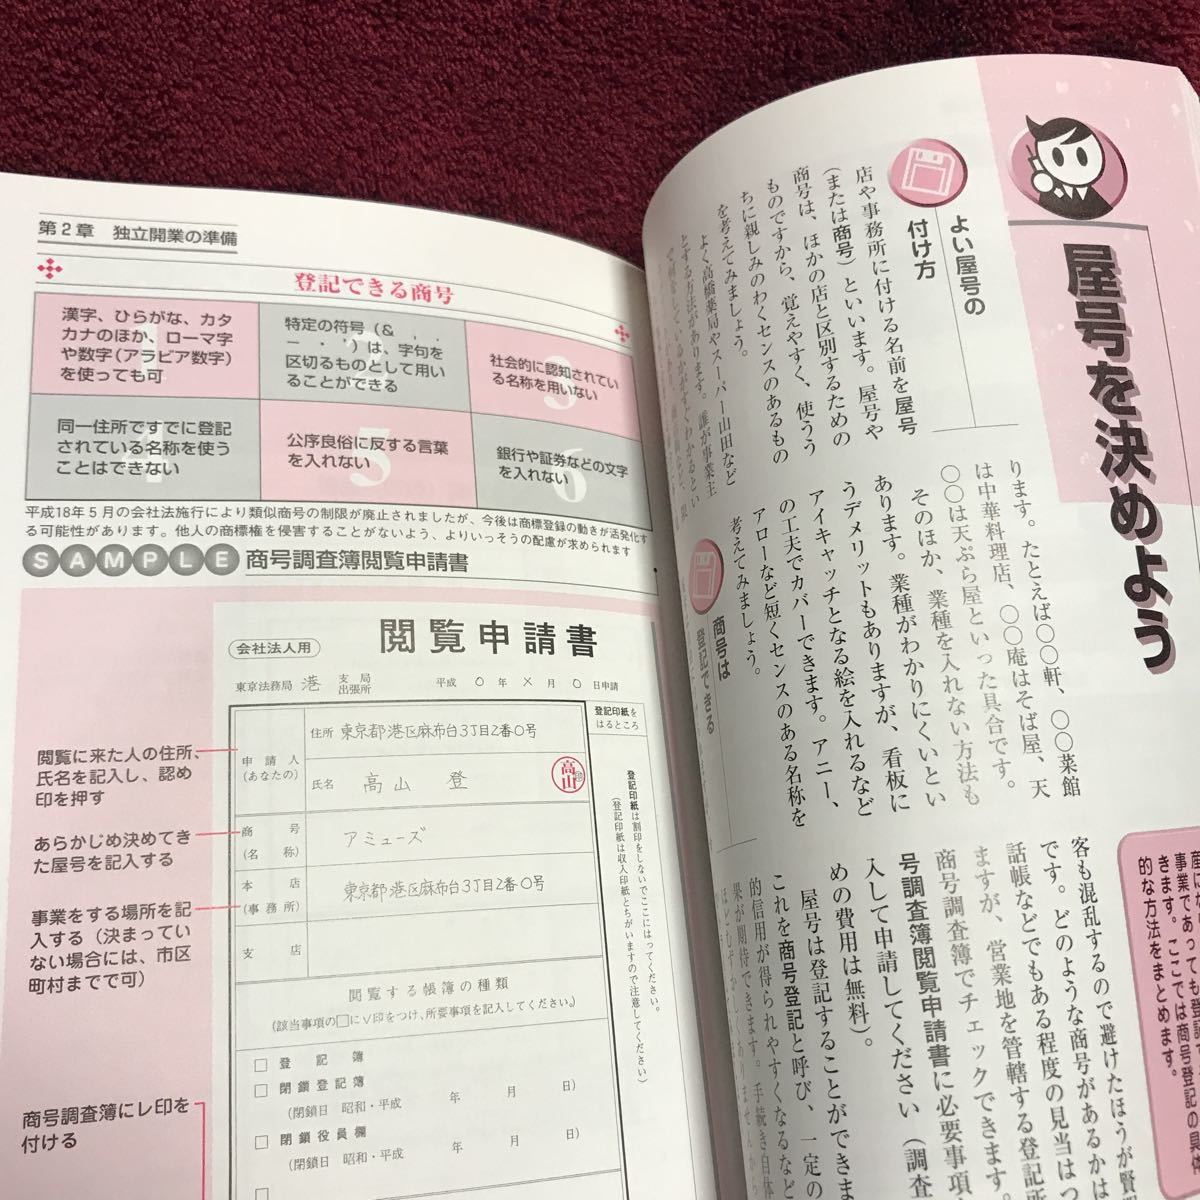 第2章 独立開業の準備
登記できる商号
漢字、ひらがな、カタ
カナのほか、ローマ字
や数字(アラビア数字)
を使っても可
特定の符号(&
)は、字句を
区切るものとして用い
ることができる
社会的に認知されてい
る名称を用いない
同一住所ですでに登記
されている名称を使う
ことはできない
公序良俗に反する言葉
を入れない
銀行や証券などの文字
を入れない
平成18年5月の会社法施行により類似商号の制限が廃止されましたが、今後は商標登録の動きが活発化す
る可能性があります。他人の商標権を侵害することがないよう、よりいっそうの配慮が求められます
SAMPLE 商号調査簿閲覧申請書
会社法人用 閲覧申請書
東京法務局 港 支局 出張所 平成 0 年 × 月 0 日申請
申請人
(あなたの)
住所 東京都港区麻布台3丁目2番0号
氏名 高山 登
高山
印
商号
(名称)
アミューズ
本店
(事務所)
東京都港区麻布台3丁目2番0号
支店
登記印紙を
はるところ
登記印紙は割印をしないでここにはってください。
(登記印紙は収入印紙とちがいますので注意してください)
閲覧する帳簿の種類
(該当事項の□に∨印をつけ、所要事項を記入してください。)
□ 登記簿
□ 閉鎖登記簿
(閉鎖日 昭和・平成 年 月 日)
□ 閉鎖役員欄
(閉鎖日 昭和・平成 年 月 日)
閲覧に来た人の住所、
氏名を記入し、認め
印を押す
あらかじめ決めてき
た屋号を記入する
事業をする場所を記
入する(決まってい
ない場合には、市区
町村までで可)
商号調査簿にレ印を
付ける
屋号を決めよう
よい屋号の
付け方
店や事務所に付ける名前を屋号
(または商号)といいます。屋号や
商号は、ほかの店と区別するための
ものですから、覚えやすく、使うう
ちに親しみのわくセンスのあるもの
を考えてみましょう。
よく高橋薬局やスーパー山田など
とする方法があります。誰が事業主
ります。たとえば〇〇軒、〇〇菜館
は中華料理店、〇〇庵はそば屋、天
〇〇は天ぷら屋といった具合です。
そのほか、業種を入れない方法も
あります。業種がわかりにくいとい
うデメリットもありますが、看板に
アイキャッチとなる絵を入れるなど
の工夫でカバーできます。アニー、
アローなど短くセンスのある名称を
考えてみましょう。
商号は
登記できる
事業であっても登記で
きます。ここでは商号登記の具体
的な方法をまとめます。
客も混乱するので避けたほうが賢
です。どのような商号があるかは
話帳などでもある程度の見当はつ
ますが、営業地を管轄する登記所
商号調査簿でチェックできます。
号調査簿閲覧申請書に必要事項
入して申請してください(調査
めの費用は無料)。
屋号は登記することができま
これを商号登記と呼び、一定の
的信用が得られやすくなるなど
果が期待できます。手続き自体